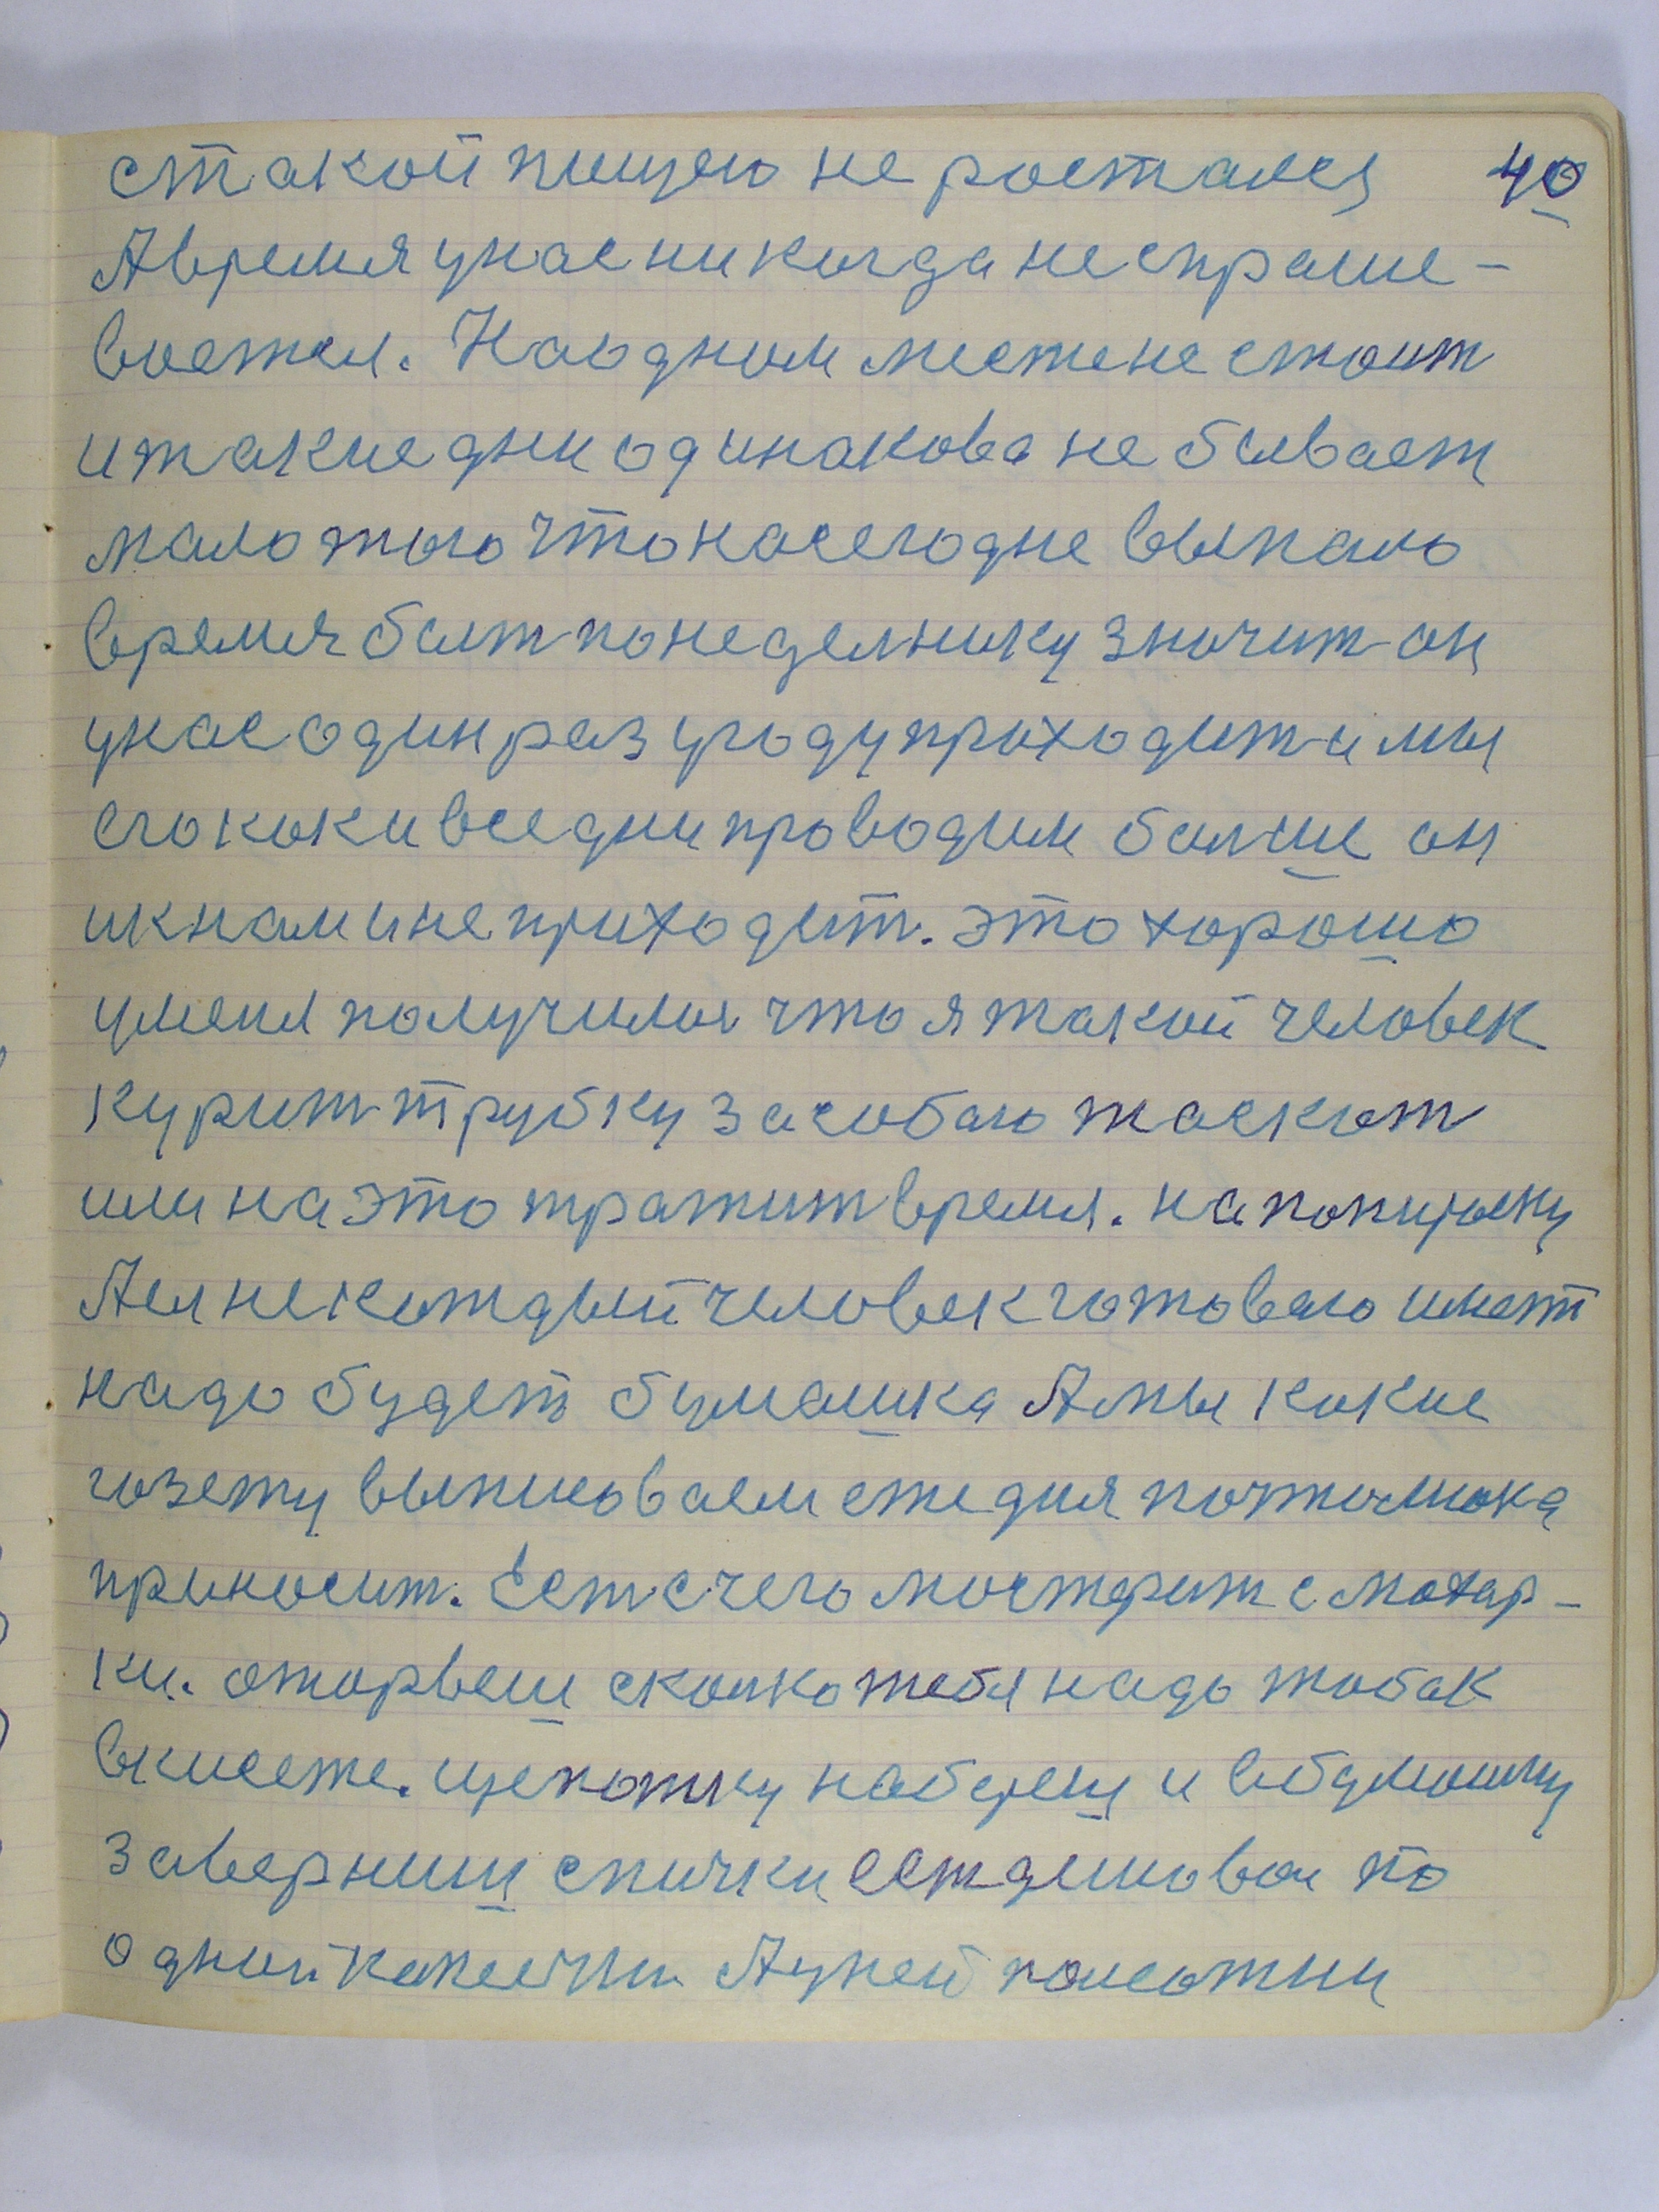 стакой пищею не росталса 40
Авремя унас никогда неспраше-
вается. Наодном месте не стоит
и такие дни одинакова не бывает
мало того что насегодне выпало
время быт понеделнику значит он
унас один раз угоду приходит и мы
его как и все дни проводим болше он
и к нам и не приходит. это хорошо
уменя получилос что я такой человек
курит трубку засобою таскат
или на это тратит время. на попиросу
Ая некаждый человек готоваю имет
надо будет бумашка Амы какие
газету выписоваем ежедня почталиона
приносит. Ест счего мастерит с махар-
ки. оторвеш сколко тебя надо табак
вкисете. щепотку набереш и вбумашку
завернеш спички ест дешовои по
одной копеечки Ауней полсотни